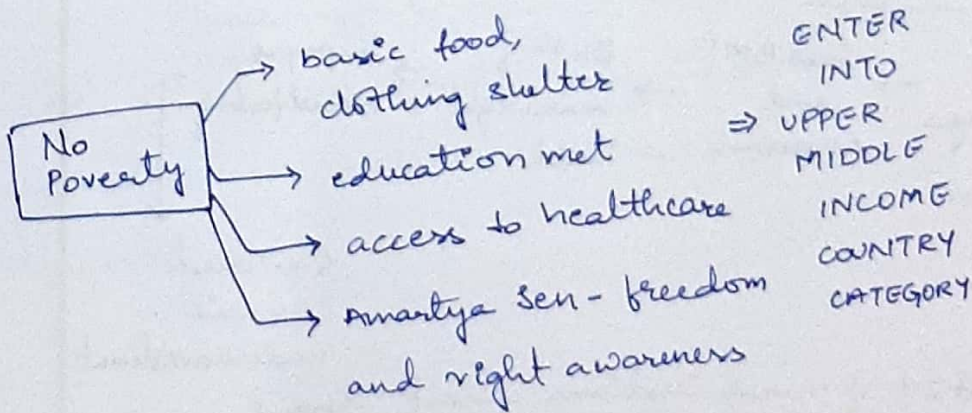 No
Poverty
basic food,
clothing shelter
education met
access to healthcare
Amartya Sen - freedom
and right awareness
⇒ 
ENTER
INTO
UPPER
MIDDLE
INCOME
COUNTRY
CATEGORY